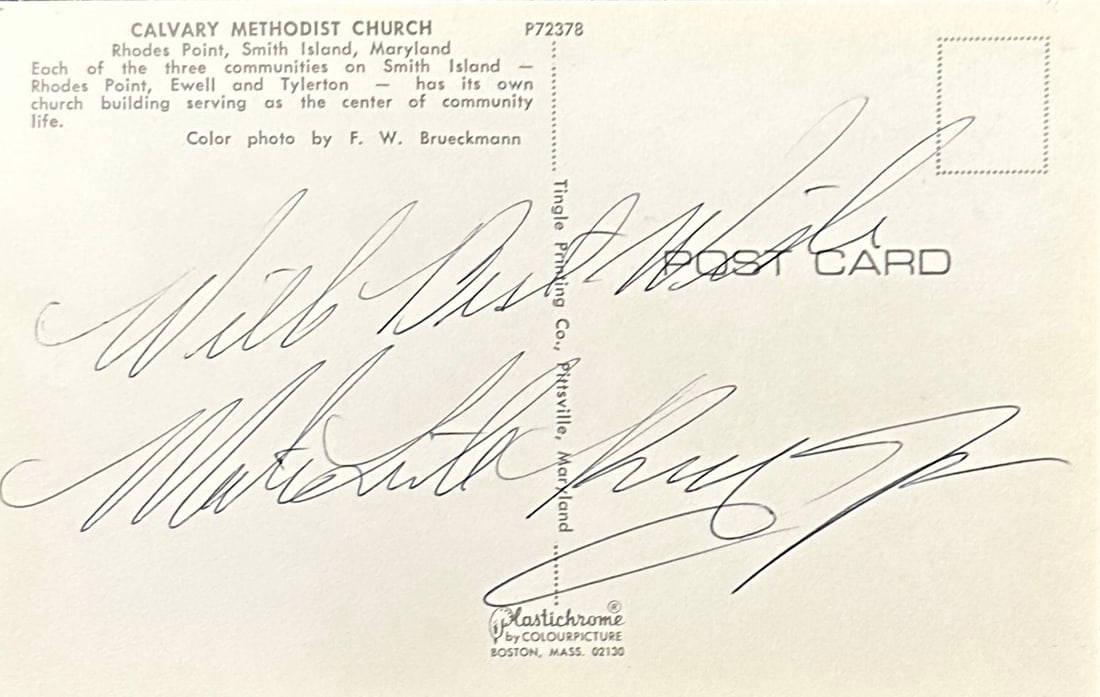 CALVARY METHODIST CHURCH
P72378
Rhodes Point, Smith Island, Maryland
Each of the three communities on Smith Island —
Rhodes Point, Ewell and Tylerton — has its own
church building serving as the center of community
life.
Color photo by F. W. Brueckmann
With Best Wishes
POST CARD
Martin Luther King Jr
Tingle Printing Co., Pittsville, Maryland
Plastichrome®
by COLOURPICTURE
BOSTON, MASS. 02130